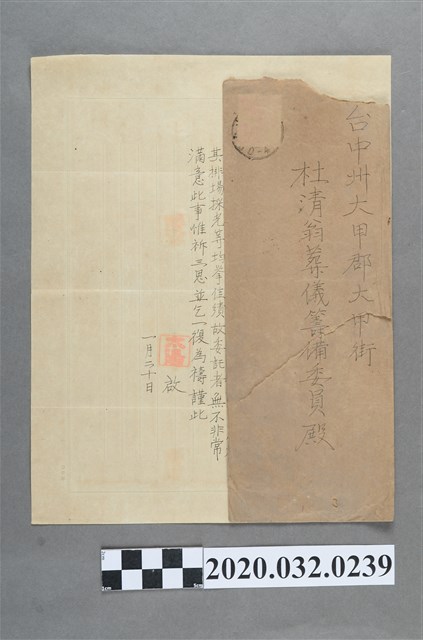 台中州大甲郡大甲街
杜清翁葬儀籌備委員殿
其排場採光等均擧佳績故委託者無不非常
滿意此事惟祈三思並乞一復為禱謹此
啟
一月二十日
2020.032.0239